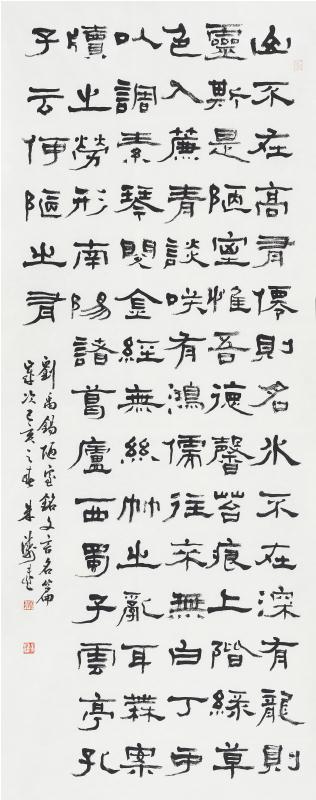 山不在高有僊則名水不在深有龍則
靈斯是陋室惟吾德馨苔痕上階緑草
色入簾青談咲有鴻儒往來無白丁可
以調素琴閱金經無絲竹之亂耳無案
牘之勞形南陽諸葛廬西蜀子雲亭孔
子云何陋之有
劉禹錫陋室銘文言名篇
歲次己亥之春朱